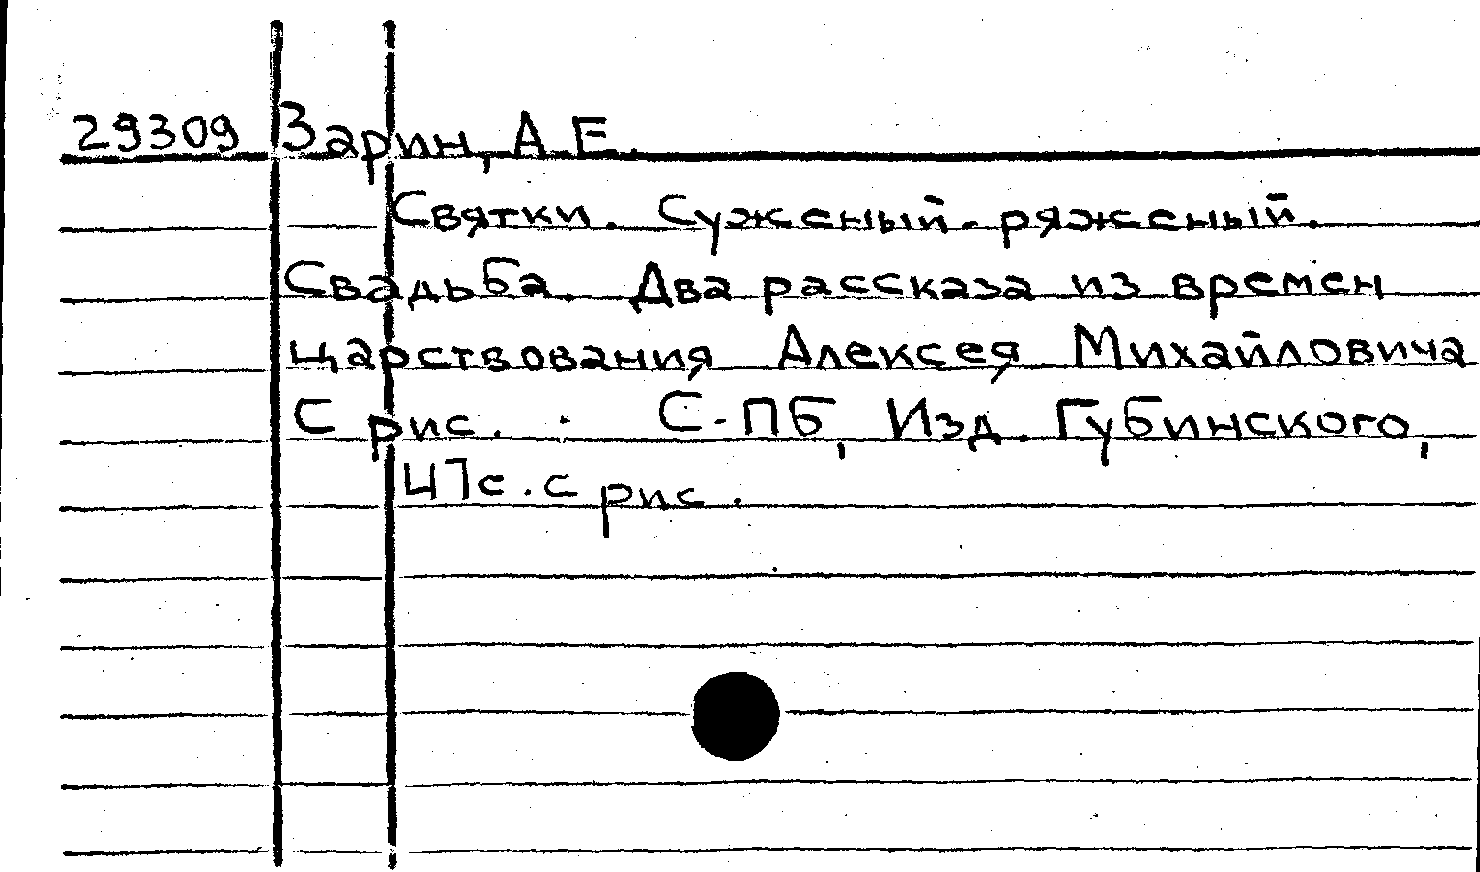 29309 Зарин, А.Е.
Святки. Суженый-ряженый.
Свадьба. Два рассказа из времен
царствования Алексея Михайловича
С рис. С-ПБ, Изд. Губинского,
47с. с рис.